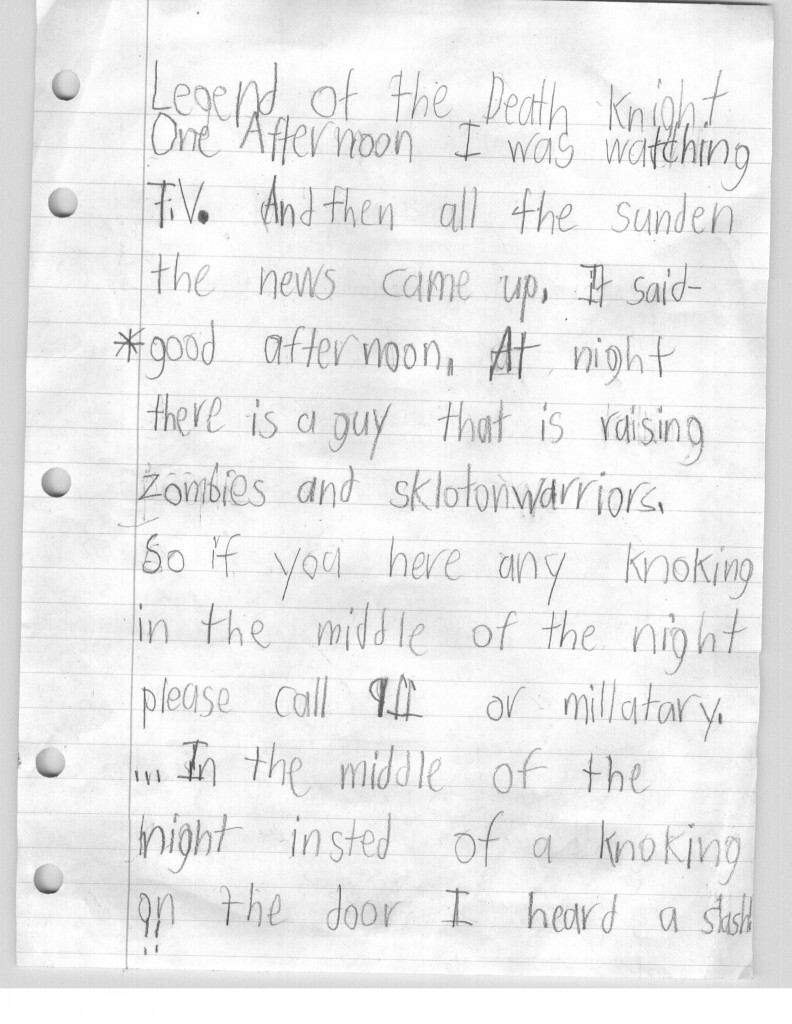 Legend of the Death Knight
One Afternoon I was watching
T.V. And then all the sunden
the news came up. It said-
*good afternoon. At night
there is a guy that is raising
zombies and sklotonwarriors.
So if you here any knoking
in the middle of the night
please call 911 or millatary.
... In the middle of the
night insted of a knoking
on the door I heard a slash
!!